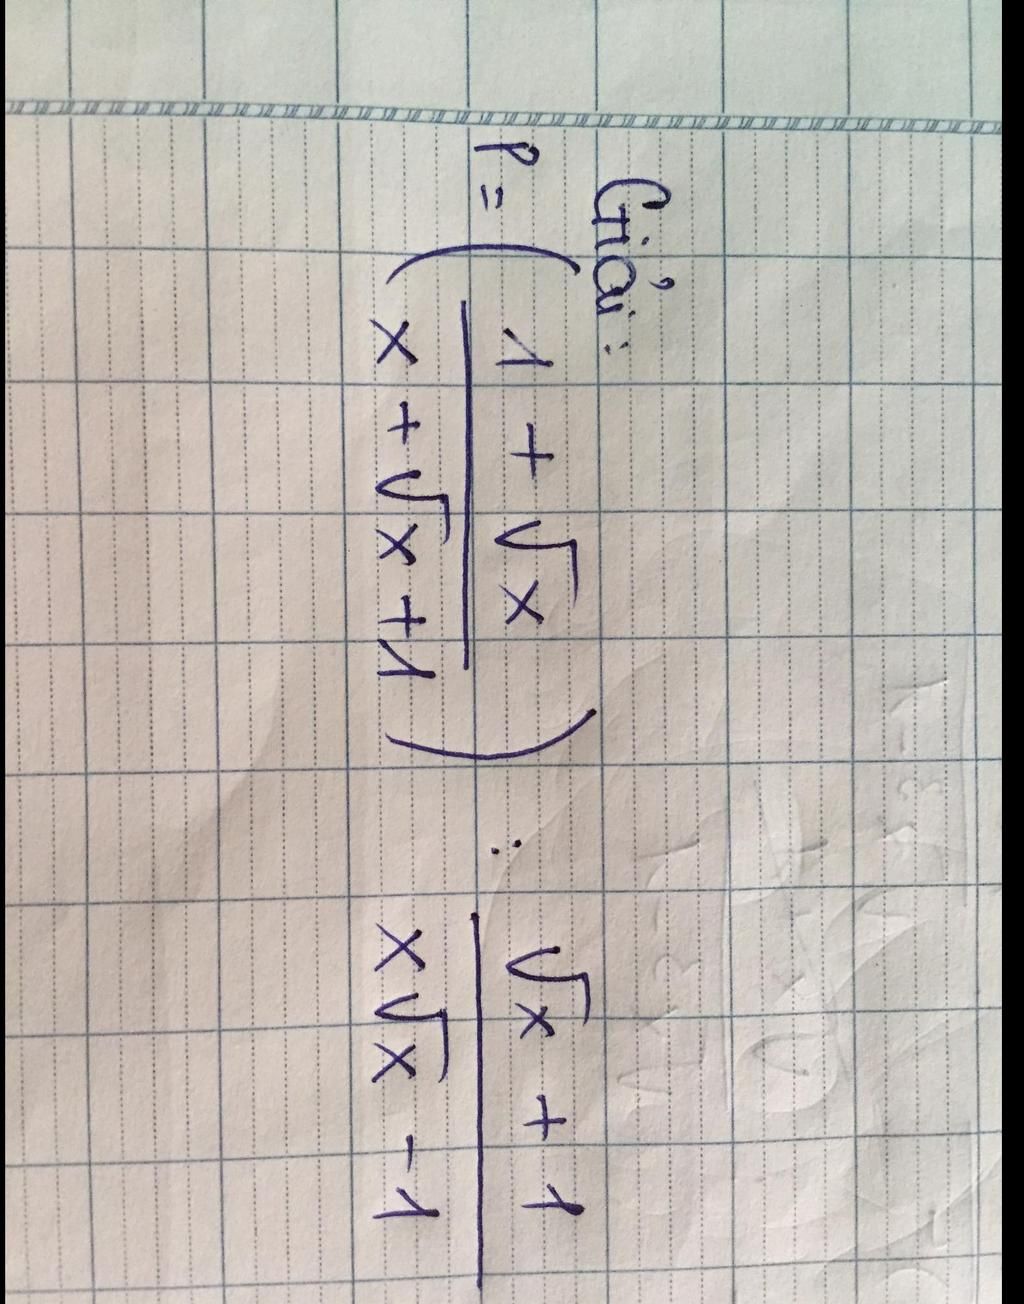 Giải:
P = ( (1 + √x) / (x + √x + 1) ) : (√x + 1) / (x√x - 1)